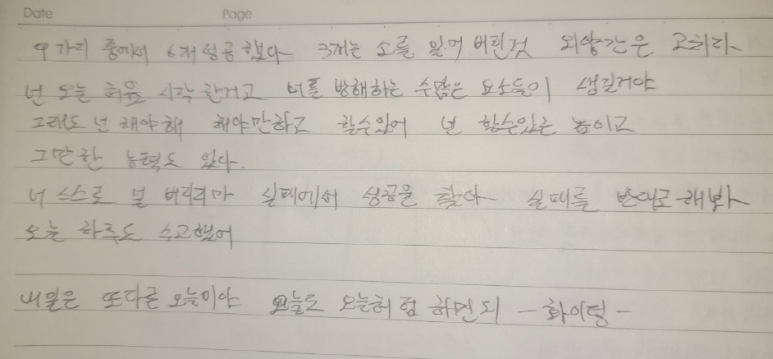 Date Page
9가지 중에서 6개 성공했다 3개는 소를 잃어 버린것 외양간은 고치라
넌 오늘 처음 시작 한거고 너를 방해하는 수많은 요소들이 생길거야
그래도 넌 해야해 해야만하고 할수있어 넌 할수있는 놈이고
그만한 능력도 있다.
너 스스로 널 버리지마 실패에서 성공을 찾아 실패를 반대로 해봐
오늘 하루도 수고했어
내일은 또다른 오늘이야 오늘도 오늘처럼 하면되 - 화이팅 -